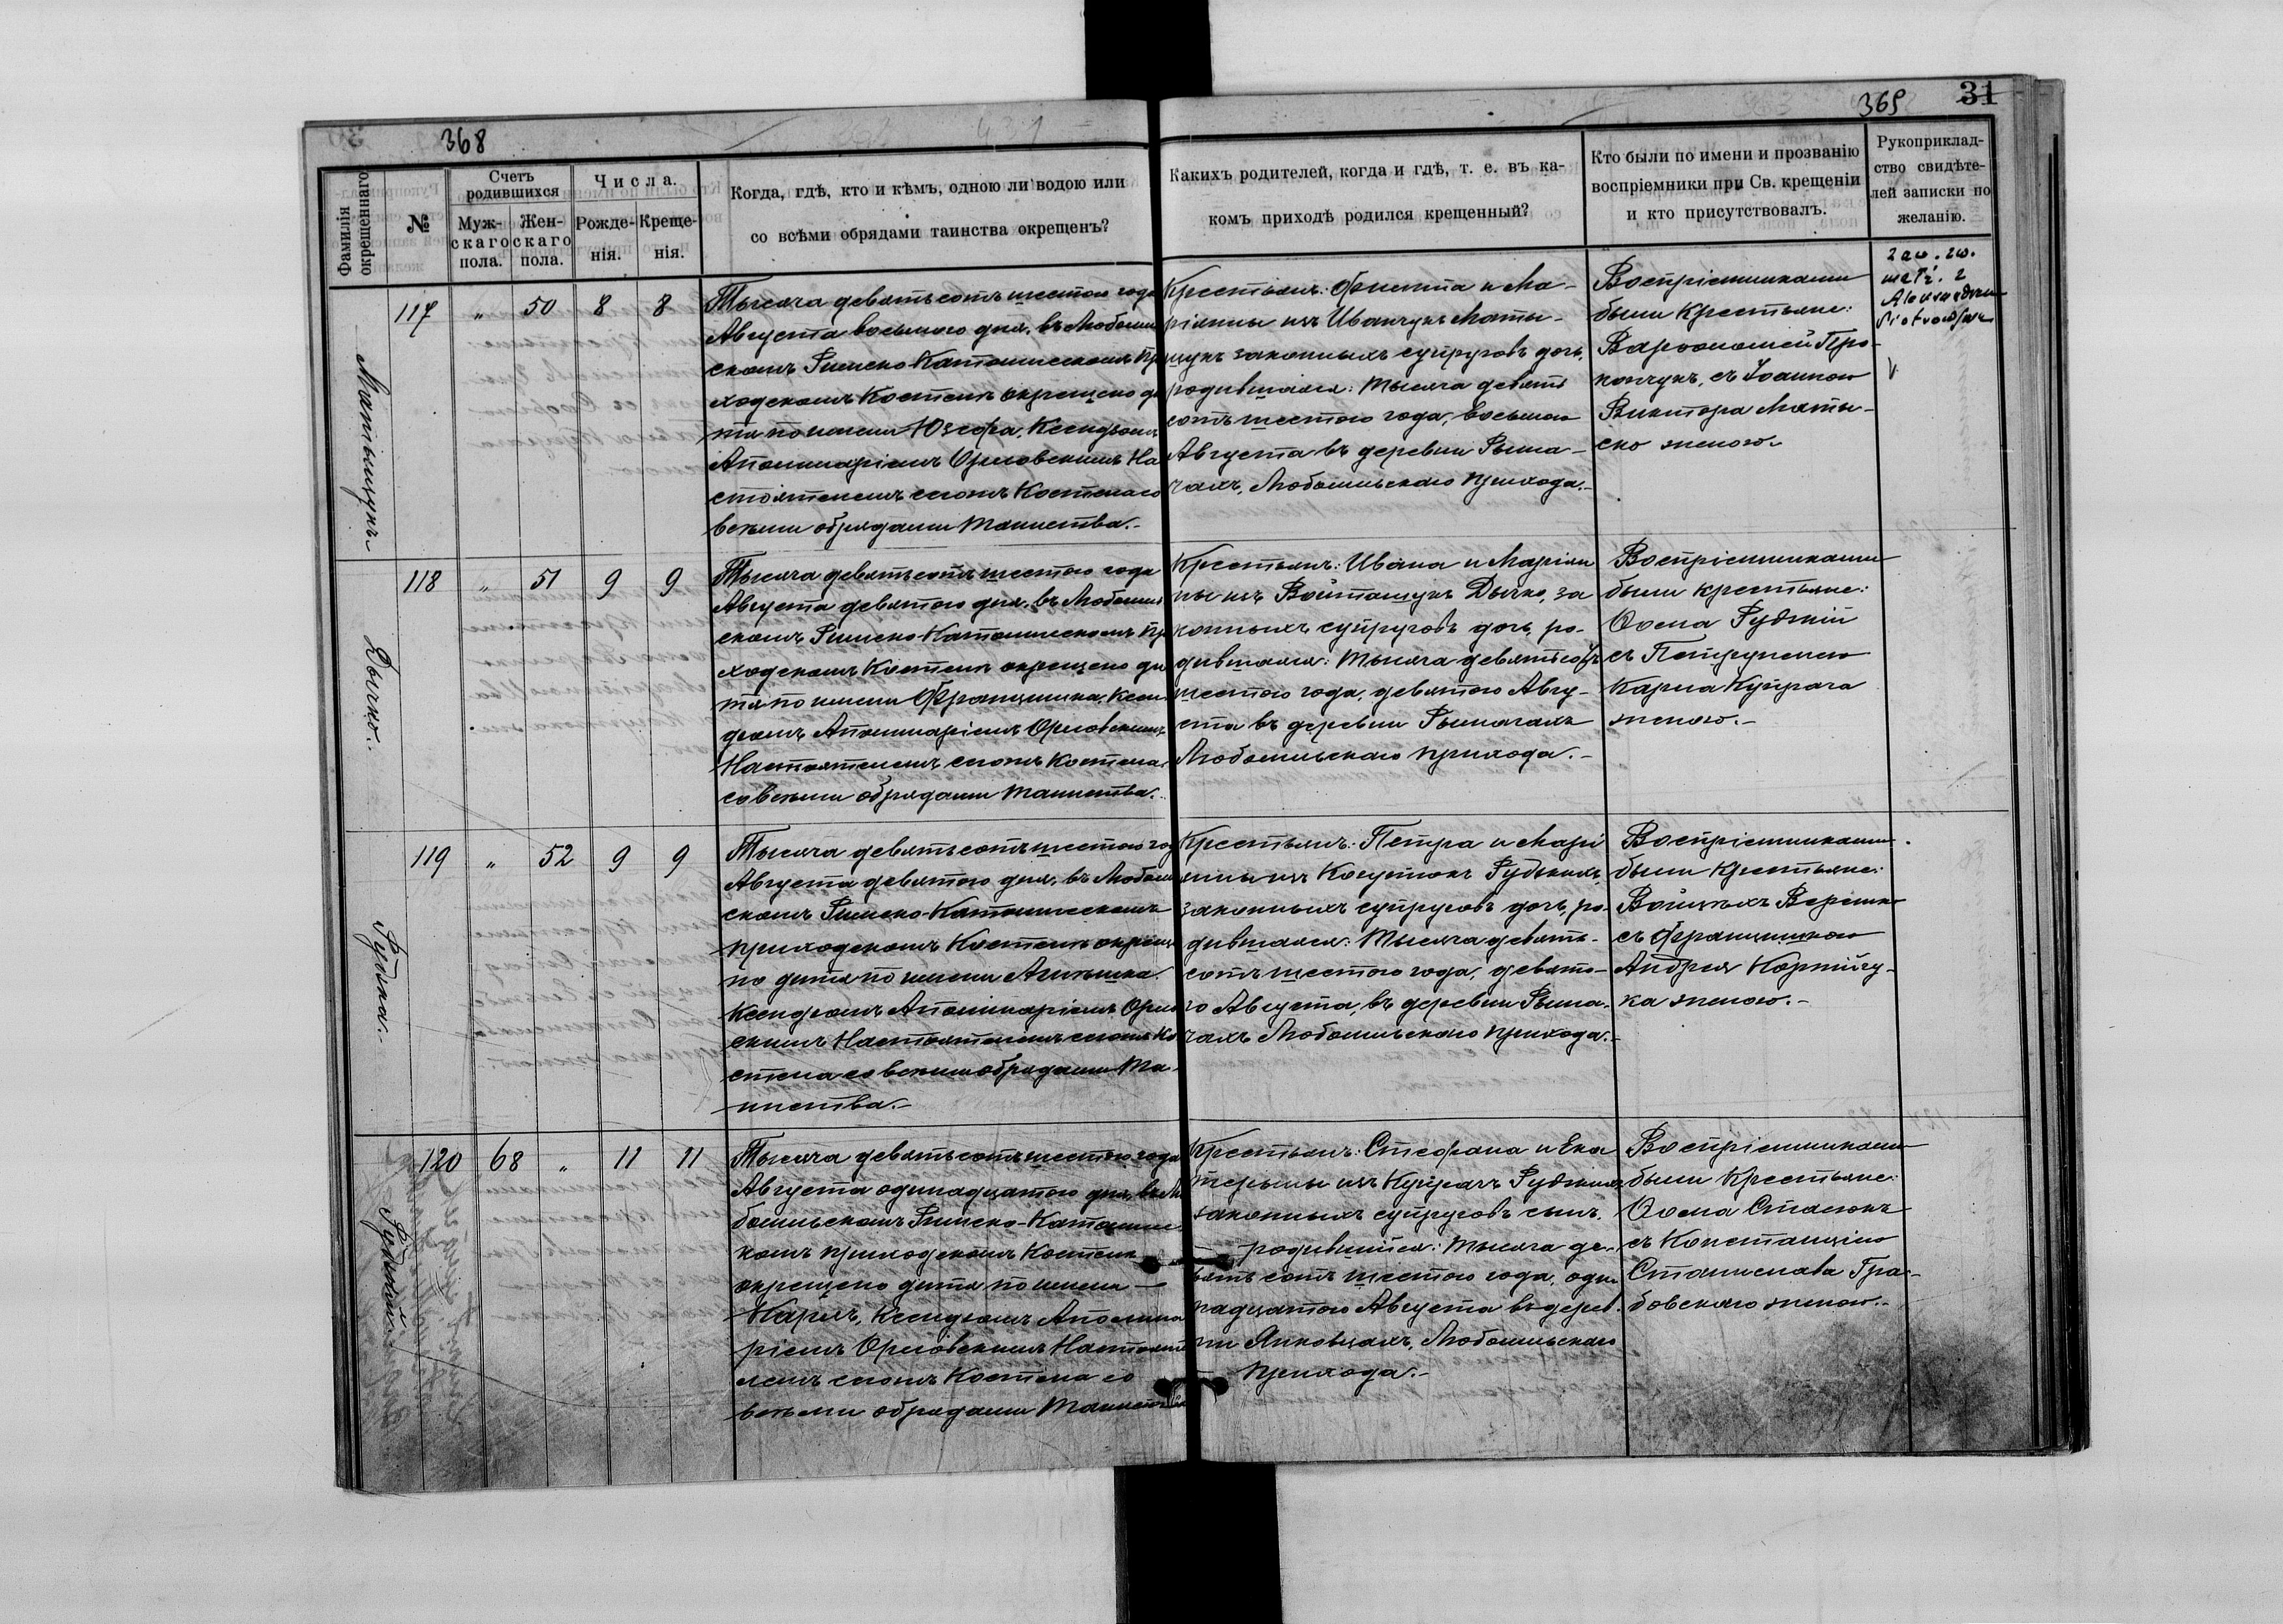 368
365
31
Фамилія окрещеннаго
№
Счетъ родившихся
Муж-
скаго
пола.
Жен-
скаго
пола.
Числа.
Рожде-
нія.
Креще-
нія.
Когда, гдѣ, кто и кѣмъ, одною ли водою или
со всѣми обрядами таинства окрещенъ?
Какихъ родителей, когда и гдѣ, т. е. въ ка-
комъ приходѣ родился крещенный?
Кто были по имени и прозванію
воспріемники при Св. крещеніи
и кто присутствовалъ.
Рукоприклад-
ство свидѣте-
лей записки по
желанію.
Матыщукъ
117 „ 50 8 8
Тысяча девятьсотъ шестого года
Августа восьмого дня, въ Любомль
скомъ Римско-Католическомъ При
ходскомъ Костелѣ окрещено ди
тя по имени Юзефа, Ксендзомъ
Аполинаріемъ Орловскимъ На
стоятелемъ сего Костела со
всѣми обрядами Таинства.-
Крестьянъ: Филиппа и Ма-
ріянны изъ Иванчукъ Маты-
щукъ законныхъ супруговъ дочь,
родившаяся: Тысяча девять
сотъ шестого года, восьмого
Августа въ деревни Рыма-
чахъ, Любомльскаго прихода.-
Воспріемниками
были Крестьяне:
Варѳоломей Про-
копчукъ, съ Іоанною
Виктора Маты-
ско женою.
zaw. zw.
małż. z
Aleksandrem
Piotrowskim
V
Дычко.
118 „ 51 9 9
Тысяча девятьсотъ шестого года
Августа девятого дня, въ Любомль
скомъ Римско-Католическомъ При
ходскомъ Костелѣ окрещено ди
тя по имени Францишка, Ксен
дзомъ Аполинаріемъ Орловскимъ
Настоятелемъ сего Костела
со всѣми обрядами Таинства.
Крестьянъ: Ивана и Маріян
ны изъ Войтощукъ Дычко, за
конныхъ супруговъ дочь, ро-
дившаяся: Тысяча девятьсотъ
шестого года, девятого Авгу-
ста въ деревни Рымачахъ
Любомльскаго прихода.-
Воспріемниками
были крестьяне:
Ѳома Рудзкій
съ Петрунелею
Карла Купрача
женою.-
Рудзка.
119 „ 52 9 9
Тысяча девятьсотъ шестого го
Августа девятого дня, въ Любомль
скомъ Римско-Католическомъ
приходскомъ Костелѣ окреще
но дитя по имени Агнѣшка.
Ксендзомъ Аполинаріемъ Орлов
скимъ Настоятелемъ сего Ко
стела со всѣми обрядами Та-
инства.-
Крестьянъ: Петра и Марі
янны изъ Косуток Рудзкихъ,
законныхъ супруговъ дочь, ро-
дившаяся: Тысяча девять-
сотъ шестого года, девято-
го Августа, въ деревни Рыма-
чахъ Любомльскаго прихода.-
Воспріемниками
были Крестьяне:
Войцехъ Верешко
съ Францишкою
Андрея Корнійчу-
ка женою.-
Рудзкій.
120 68 „ 11 11
Тысяча девятьсотъ шестого года
Августа одинадцатого дня, въ Лю
бомльскомъ Римско-Католичес
комъ приходскомъ Костелѣ
окрещено дитя по имени —
Карлъ, Ксендзомъ Аполина
ріемъ Орловскимъ Настояте
лемъ сего Костела со
всѣми обрядами Таинства
Крестьянъ: Стефана и Ека
терины изъ Купрачъ Рудзкихъ
законныхъ супруговъ сынъ,
родившійся: Тысяча де-
вять сотъ шестого года, оди
надцатого Августа въ дерев-
ни Янковцахъ, Любомльскаго
прихода.-
Воспріемниками
были Крестьяне:
Ѳома Стасюкъ
съ Констанціею
Станислава Гра-
бовскаго женою.-